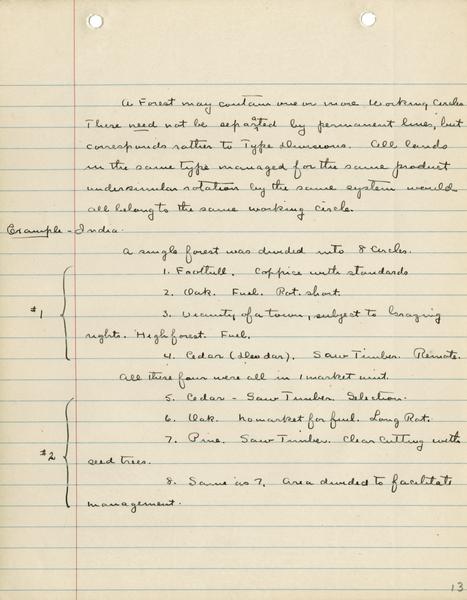 A Forest may contain one or more Working Circles
These need not be separated by permanent lines, but
corresponds rather to Type divisions. All lands
in the same type managed for the same product
under similar rotation by the same system would
all belong to the same working circle.
Example - India.
A single forest was divided into 8 Circles.
1. Foothill. Coppice with standards
2. Oak. Fuel. Rot. short.
#1
3. Vicinity, of a town, subject to Grazing
rights. High forest. Fuel.
4. Cedar (Deodar). Saw Timber. Remote.
All these four were all in 1 market unit.
5. Cedar - Saw Timber. Selection.
6. Oak. No market for fuel. Long Rot.
7. Pine. Saw Timber. Clear Cutting with
#2
seed trees.
8. Same as 7. Area divided to facilitate
management.
13